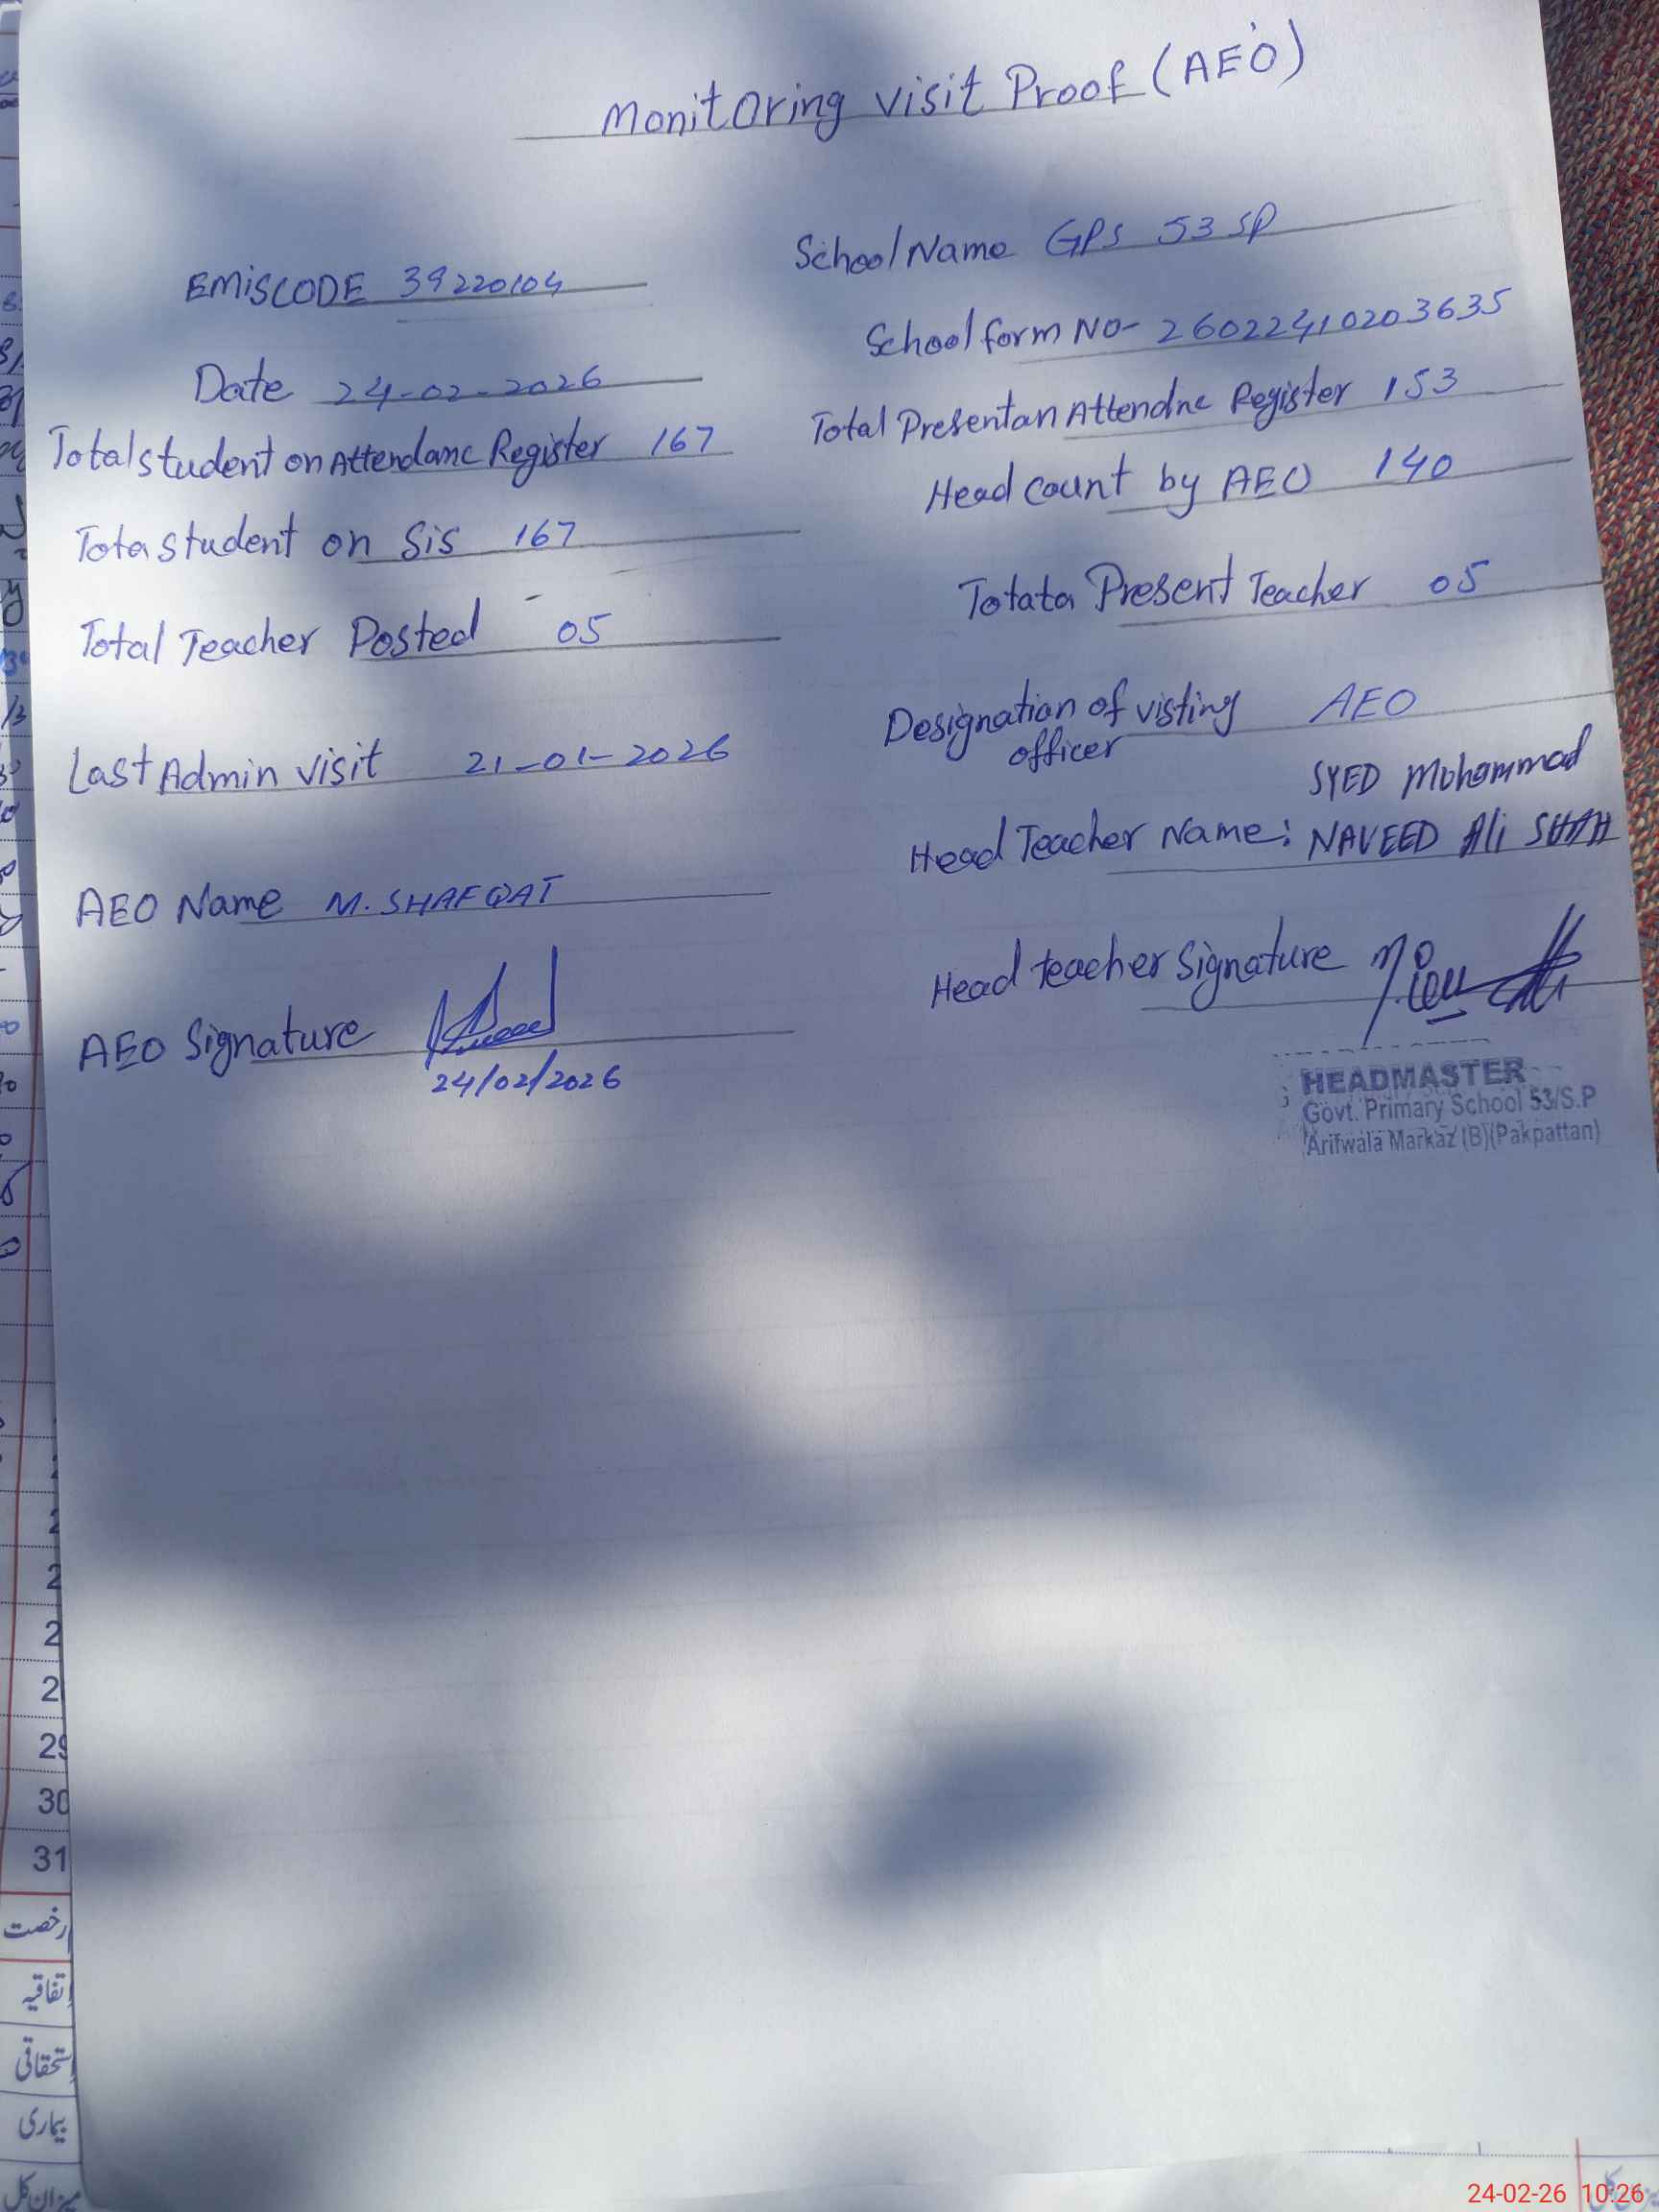 Monitoring visit Proof (AEO)
School Name GPS 53 SP
EMISCODE 39220104
School form NO- 26022410203635
Date 24-02-2026
Total Presentan Attendnc Register 153
Total student on Attendanc Register 167
Head count by AEO 140
Tota student on Sis 167
Totata Present Teacher 05
Total Teacher Posted 05
Designation of visting AEO
officer
Last Admin visit 21-01-2026
SYED Mohammad
Head Teacher Name: NAVEED Ali SHAH
AEO Name M. SHAFQAT
Head teacher Signature
AEO Signature
24/02/2026
HEADMASTER
Govt. Primary School 53/S.P
Arifwala Markaz (B)(Pakpattan)
29
30
31
رخصت
اتفاقیہ
استحقاقی
بیماری
میزان کل
24-02-26 10:26